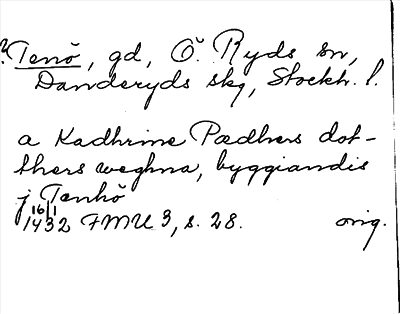 ? Tenö, gd, Ö. Ryds sn,
Danderyds skg, Stockh. l.
a Kadhrine Pædhers dot-
thers weghna, byggiandis
j Tenhö
16/1
1432 FMU 3, s. 28. orig.